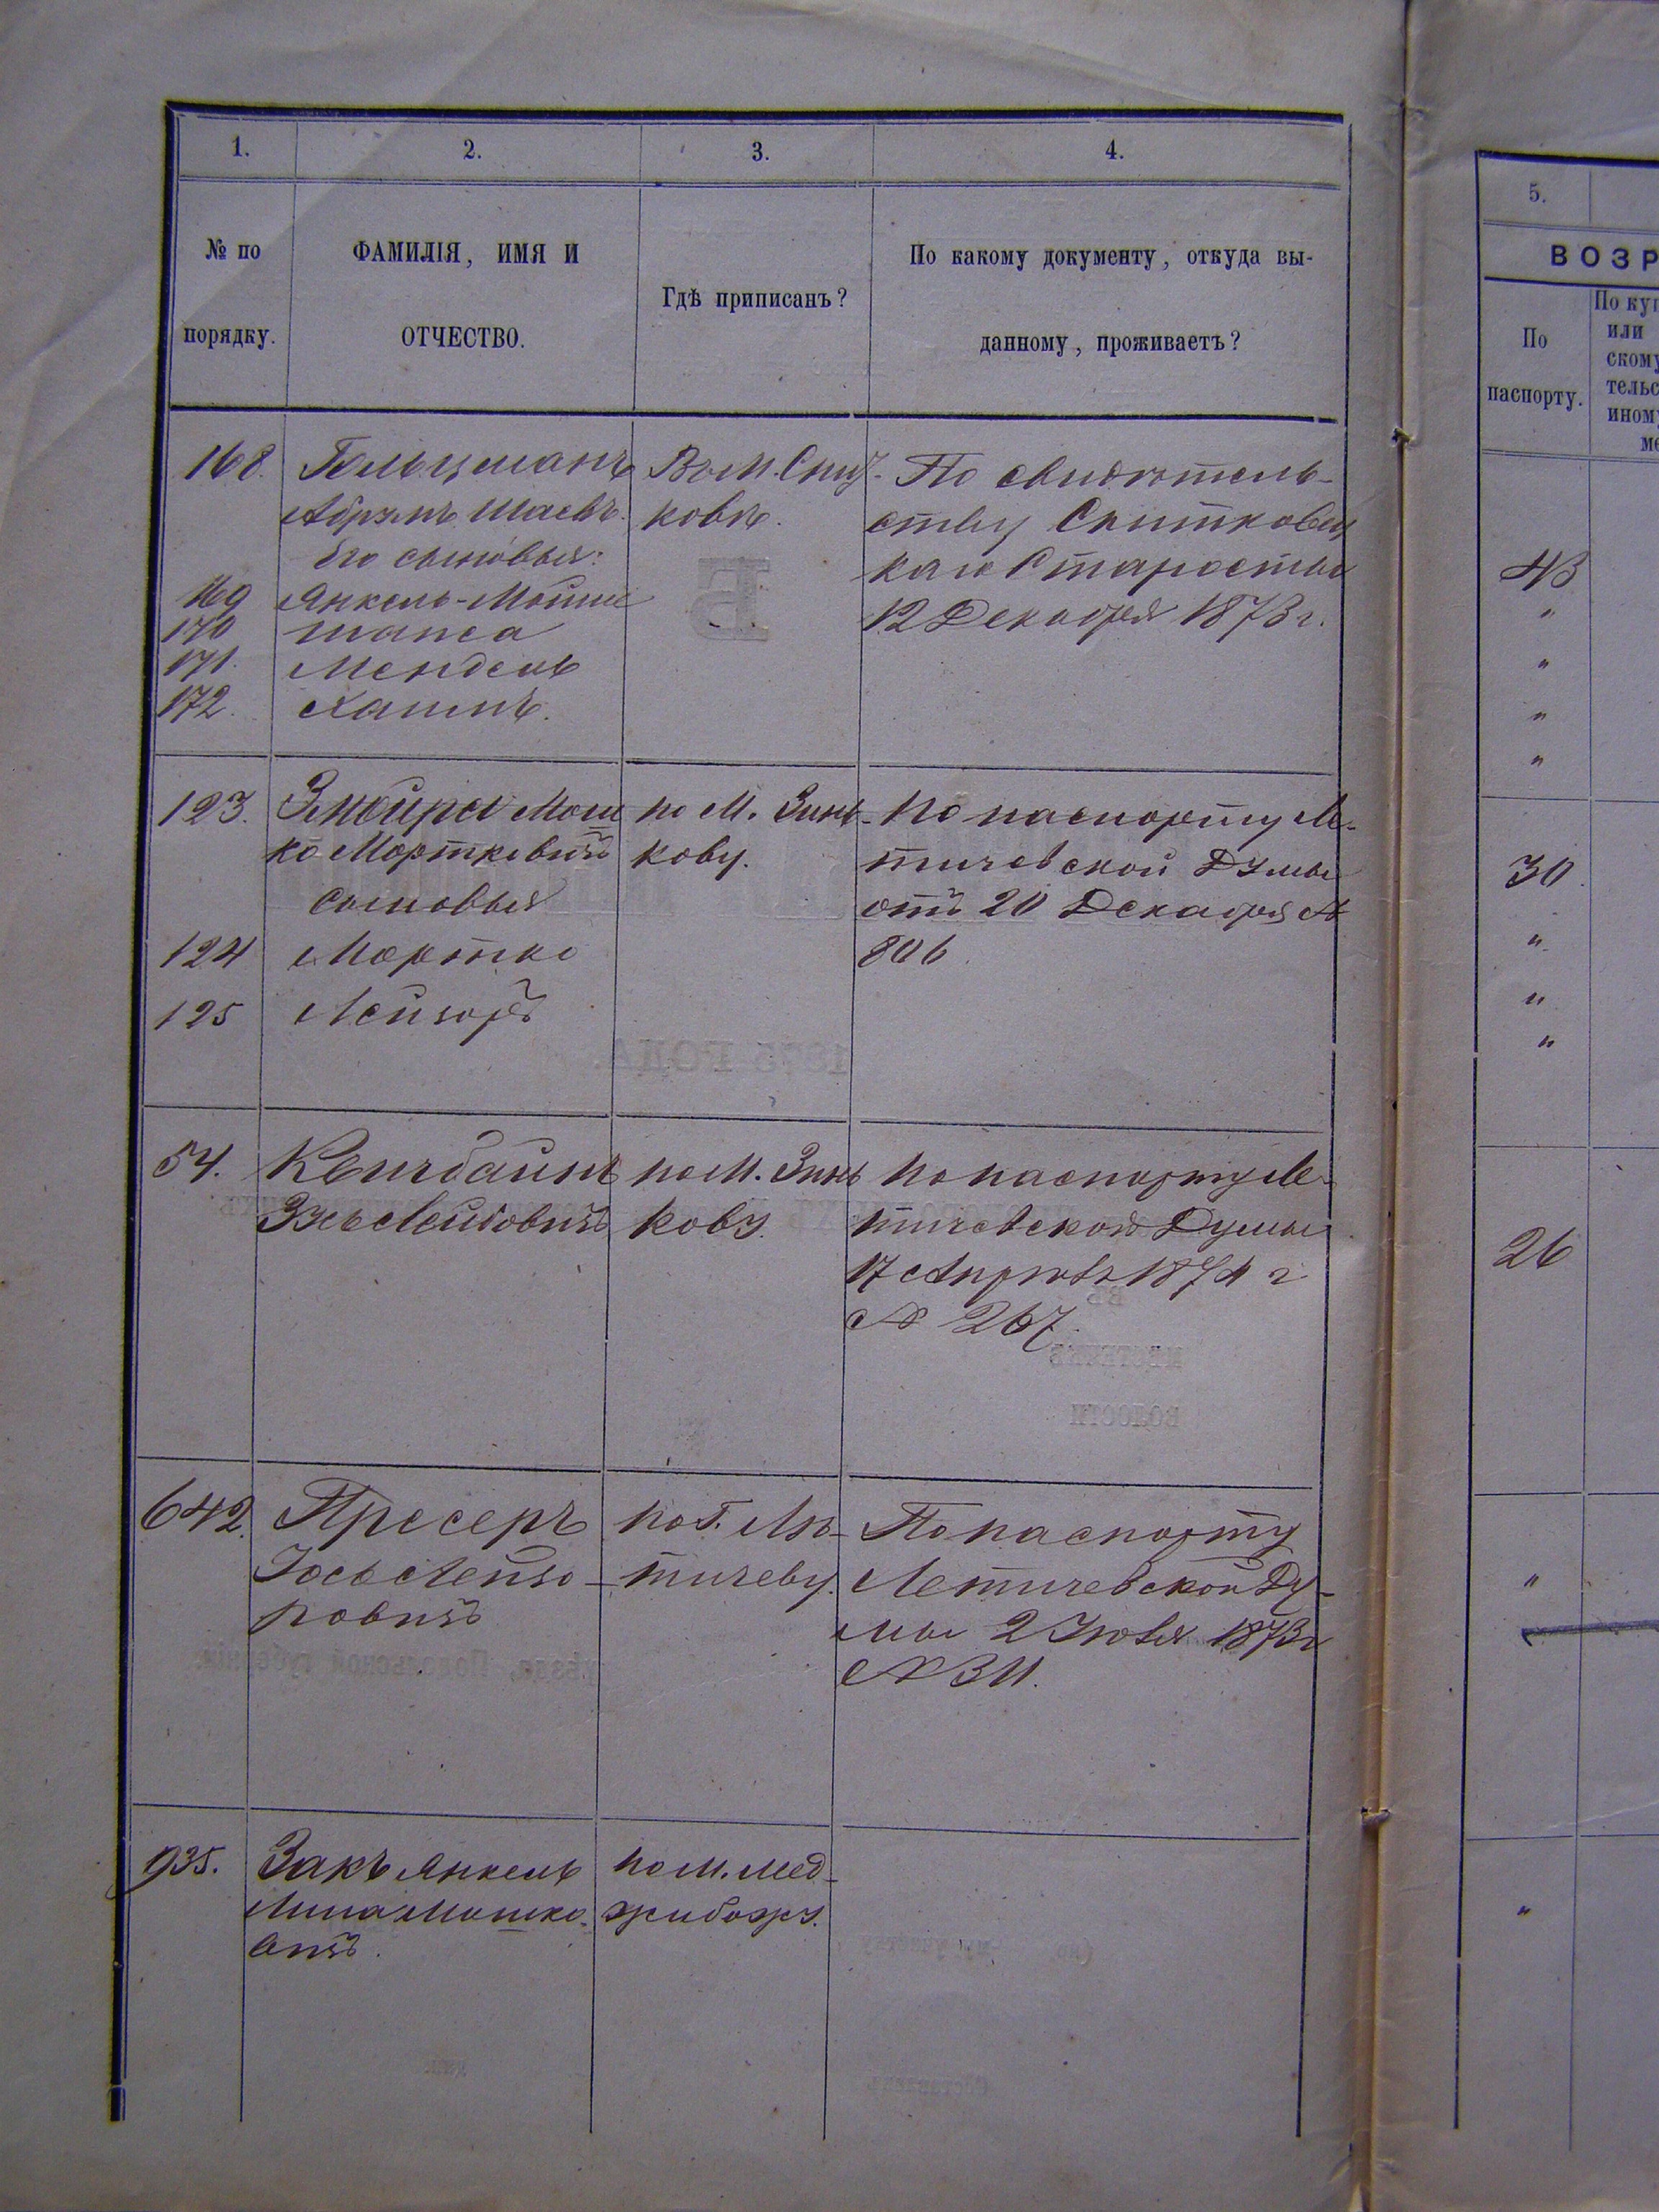 1. 2. 3. 4.
№ по порядку.
ФАМИЛІЯ, ИМЯ И
ОТЧЕСТВО.
Гдѣ приписанъ?
По какому документу, откуда вы-
данному, проживаетъ?
168. Гольцманъ
Абрумъ Шаевъ.
Его сыновья:
169 Янкель-Мойше
170 Шапса
171. Мендель
172. Хаимъ.
Въ М.
ковѣ.
По свидѣтель-
ству
каго Старосты
12 Декабря 1873 г.
123. Змойра Мош
коМорткевичъ
сыновья
124 Мортко
125 Лейзоръ
по М. Зинь-
кову.
По паспорту Ле-
тичевской Думы
отъ 20 Декабря №
806
54.
Зусь Лейбовичъ
по М. Зинь
кову.
По паспорту Ле-
тичевской Думы
17 Апрѣля 1874 г
№ 267.
642. Пресеръ
Іось Лейзо-
ровичъ
по Г. Лѣ-
тичеву.
По паспорту
Летичевской Ду-
мы 2 1873 г
№ 311.
935. Закъ Янкель
Липа Мошко-
вичъ.
по М. Мед-
жибожу.
5.
ВОЗР
По
паспорту.
По куп
или
скому
тельс
иному
ме
43
"
"
"
"
30.
"
"
"
26
"
"